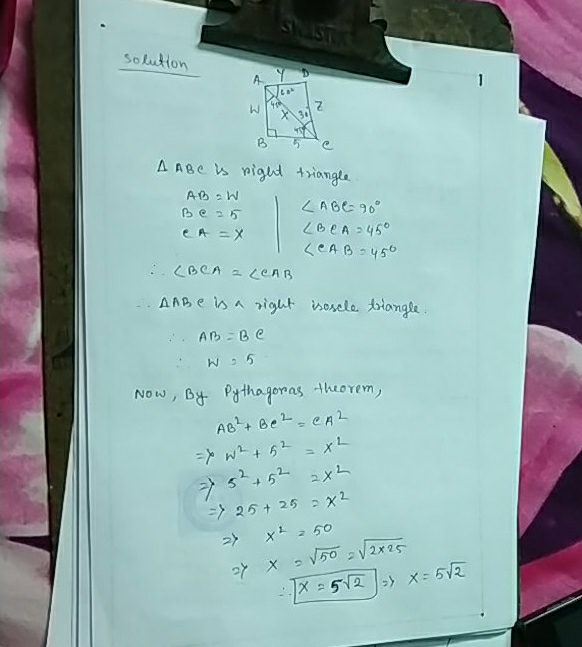 Solution
1
A Y D
60°
45°
W X 30 Z
45°
B 5 C
Δ ABC is right triangle.
AB = W ∠ABC = 90°
BC = 5 ∠BCA = 45°
CA = X ∠CAB = 45°
∴ ∠BCA = ∠CAB
∴ ΔABC is a right isoscle triangle.
∴ AB = BC
∴ W = 5
NOW, By Pythagoras theorem,
AB² + BC² = CA²
=> W² + 5² = X²
=> 5² + 5² = X²
=> 25 + 25 = X²
=> X² = 50
=> X = √50 = √2×25
∴ X = 5√2 => X = 5√2